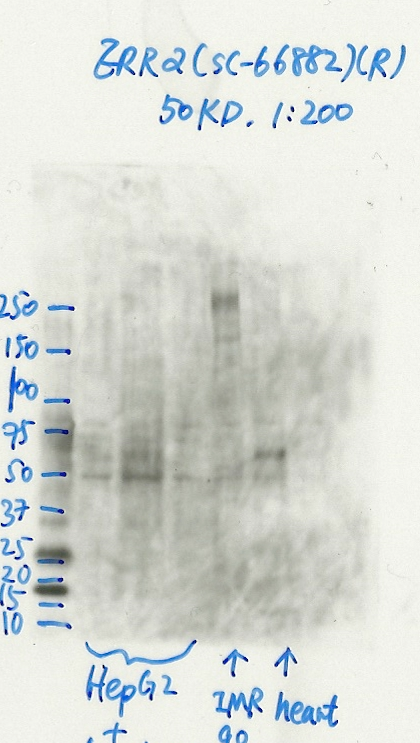 ERRα(sc-66882)(R)
50KD. 1:200
250
150
100
75
50
37
25
20
15
10
HepG2
IMR
90
heart
+